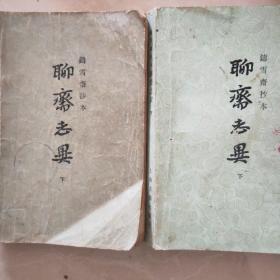 鑄雪齋抄本
聊齋志異
下
鑄雪齋抄本
聊齋志異
下